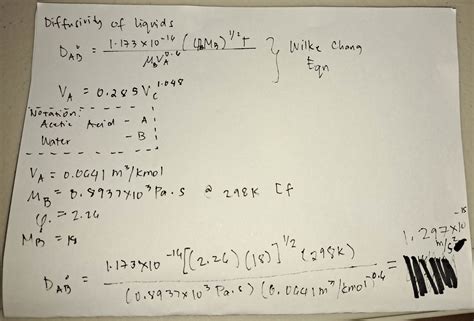 Diffusivity of liquids
D°AB = 1.173×10^-16 (φMB)^1/2 T / μB VA^0.6 } Wilke Chang Eqn
VA = 0.285 Vc^1.048
Notation:
Acetic Acid - A
Water - B
VA = 0.0641 m³/kmol
μB = 0.8937×10³ Pa.s @ 298K [f
φ = 2.26
MB = 18
D°AB = 1.173×10^-16 [(2.26)(18)]^1/2 (298K) / (0.8937×10³ Pa.s)(0.0641 m³/kmol)^0.6 = 1.297×10^-15 m/s²